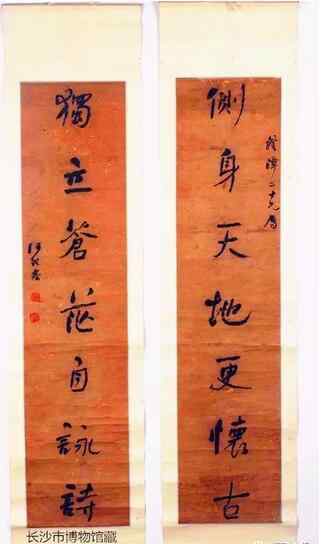 側身天地更懷古
獨立蒼茫自詠詩
何紹基
长沙市博物馆藏